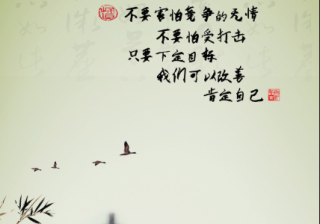 不要害怕竞争的无情
不要怕受打击
只要下定目标
我们可以改善
肯定自己